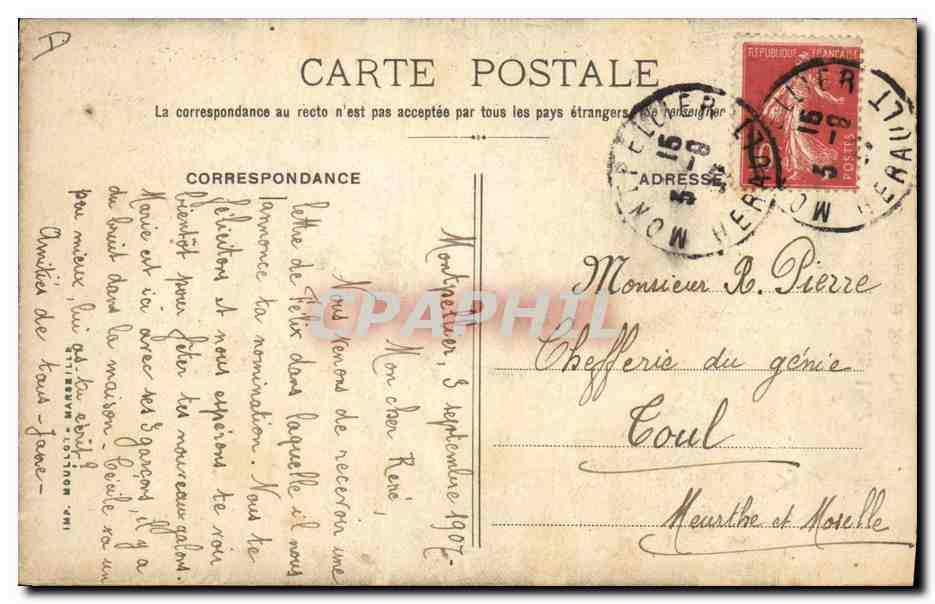 CARTE POSTALE
La correspondance au recto n'est pas acceptée par tous les pays étrangers (Se renseigner
CORRESPONDANCE
ADRESSE
REPUBLIQUE FRANÇAISE
POSTES
MONTPELLIER
15
3 -9
HERAULT
MONTPELLIER
15
3 -9
HERAULT
Montpellier, 3 septembre 1907
Mon cher René,
Nous venons de recevoir une
lettre de Félix dans laquelle il nous
annonce ta nomination. Nous te
félicitons et nous espérons te voir
bientôt pour fêter tes nouveaux galons.
Marie est ici avec ses 3 garçons, il y a
du bruit dans la maison. Cécile va un
peu mieux, lui as-tu écrit?
Amitiés de tous - Jane -
Monsieur R. Pierre
Chefferie du génie
Toul
Meurthe et Moselle
IMP. MOULLOT - MARSEILLE
CPAPHIL